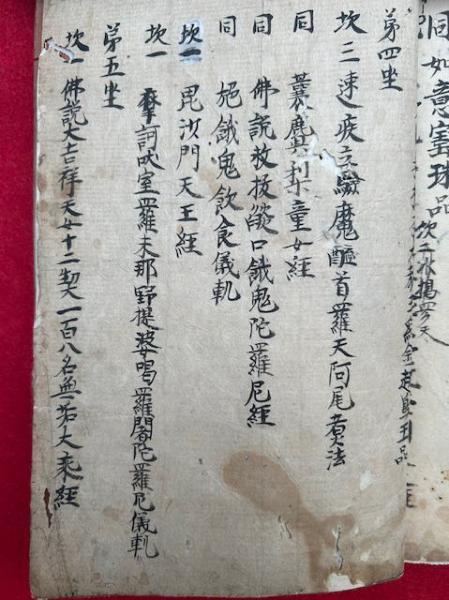 同 如意宝珠品
第四坐
坎三 速疾立驗魔醯首羅天阿尾奢法
同 蘘麌利童女經
同 佛說救拔燄口餓鬼陀羅尼經
同 施餓鬼飲食儀軌
坎一 毘沙門天王經
坎一 摩訶吠室羅末那野提婆喝羅闍陀羅尼儀軌
第五坐
坎一 佛說大吉祥天女十二契一百八名無垢大乘經